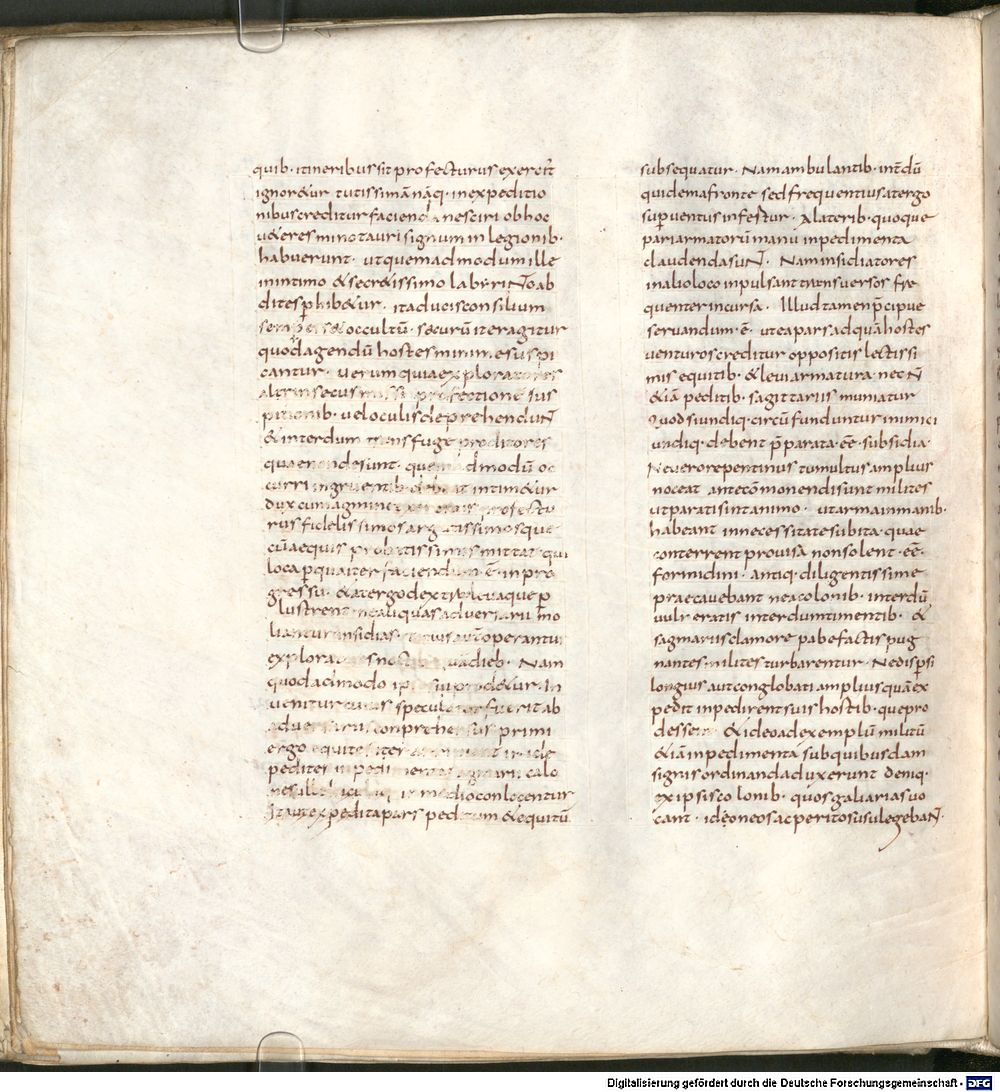 quib· itineribus sit profecturus exercit᷒
ignor&ur tutissimā nāq· in expeditio
nibus creditur facienda nesciri ob hoc
u&eres minotauri signum in legionib·
habuerunt· ut quemadmodum ille
in intimo & secr&issimo labyriNto ab
dites phib&ur· ita ducis consilium
semper occultū· securū iter agitur
quod agendū hostes minime suspi
cantur· uerum quia exploratores
altrinsecus missi profectione sus
pitionib· uel oculis deprehenduN̄
& interdum transfuge proditores
quae non desunt· quemadmodū oc
curri ingruentib· debeat intim&ur
dux cum agmine exercitus profectu
rus fidelissimos argutissimosque
cū aequis probatissimis mittat qui
loca p̱ qua iter faciendum ē· in pro
gressu· & a tergo dextra leuaque p̱
lustrent· ne aliquas aduersarii mo
liantur insidias· operantur
exploratores noctib· quā dieb· Nam
quodacimodo ipse sui prod&ur· In
uenitur cuius speculator fuerit ab
aduersariis conprehensus· primi
ergo equites iter inde
pedites inpedimenta sagmarii calo
nes in medio conlocentur
Ita ut expedita pars peditum & equitū
subsequatur· Nam ambulantib· int̄dū
quidem a fronte sed frequentius a tergo
sup̱uentus infestur· A laterib· quoque
pari armatorū manu inpedimenta
claudenda suN̄· Nam insidiatores
in alio loco inpulsant transuersos fre
quenter incursa· Illud tamen p̄cipue
seruandum· ē· ut ea pars ad quā hostes
uenturos creditur oppositis lectissi
mis equitib· & leui armatura nec N̄
& iā peditib· sagittariis muniatur
Quod si undiq· circū funduntur inimici
undiq· debent p̄parata· ēē· subsidia·
Ne uero repentinus tumultus amplius
noceat ante cōmonendi sunt milites
ut parati sint animo· ut arma in manib·
habeant in necessitate subita· quae
conterrent prouisa non solent· ēē·
formidini· antiq· diligentissime
praecauebant ne a colonib· interdū
uulneratis interdum timentib· &
sagmariis clamore pabefactis pug
nantes milites turbarentur· Ne disp̱si
longius aut conglobati amplius quā ex
pedit inpedirent suis hostib· que pro
dessent· & ideo ad exemplū militū
& iā inpedimenta sub quibusdam
signis ordinanda duxerunt deniq·
ex ipsis colonib· quos galiarias uo
cant· ideoneos ac peritos usu legebaN̄·
Digitalisierung gefördert durch die Deutsche Forschungsgemeinschaft - DFG